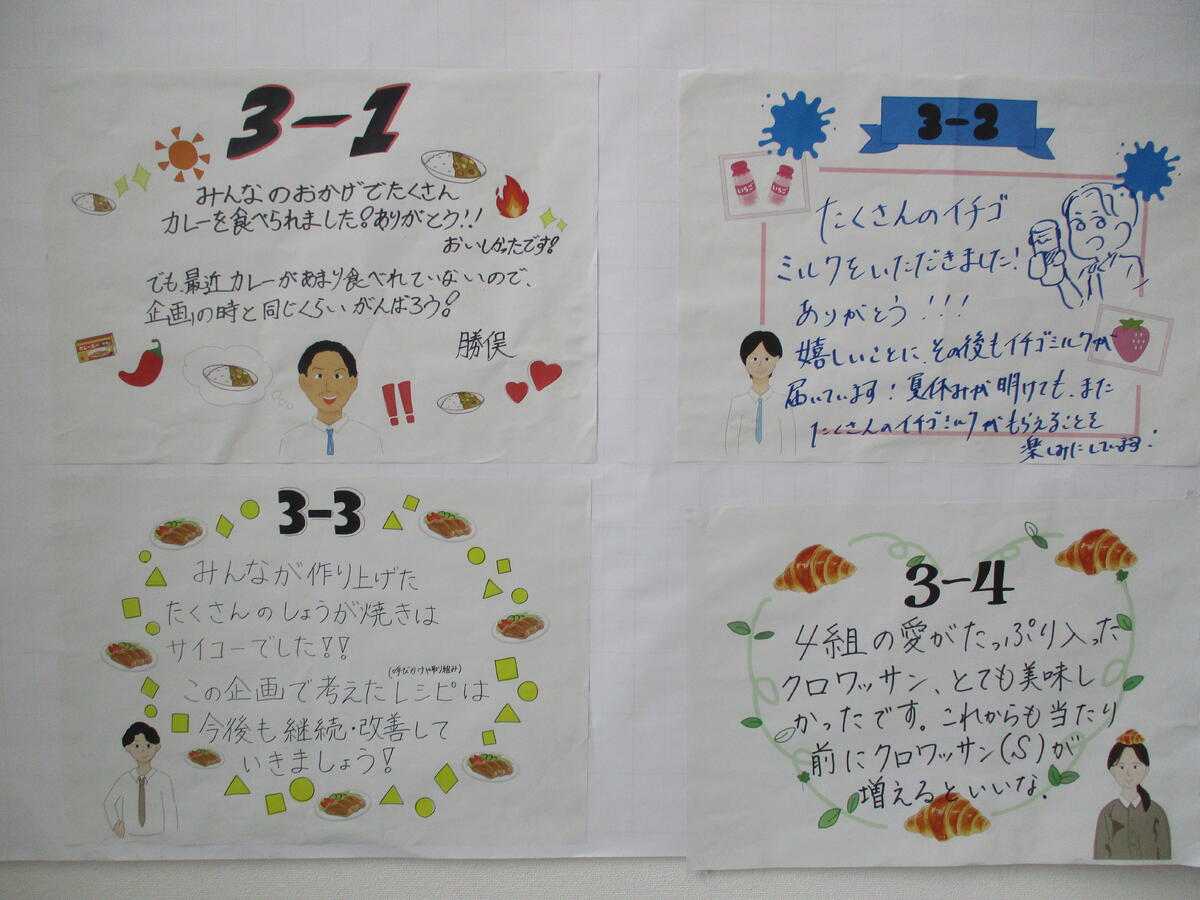 3-1
みんなのおかげでたくさん
カレーを食べられました!ありがとう!!
おいしかったです!
でも、最近カレーがあまり食べれていないので、
企画の時と同じくらいがんばろう!
勝俣
3-2
いちご
いちご
たくさんのイチゴ
ミルクをいただきました!
ありがとう!!!
嬉しいことに、その後もイチゴミルクが
届いています!夏休みが明けても、また
たくさんのイチゴミルクがもらえることを
楽しみにしています!
3-3
みんなが作り上げた
たくさんのしょうが焼きは
サイコーでした!!
(呼びかけや取り組み)
この企画で考えたレシピは
今後も継続・改善して
いきましょう!
3-4
4組の愛がたっぷり入った
クロワッサン、とても美味し
かったです。これからも当たり
前にクロワッサン(S)が
増えるといいな.